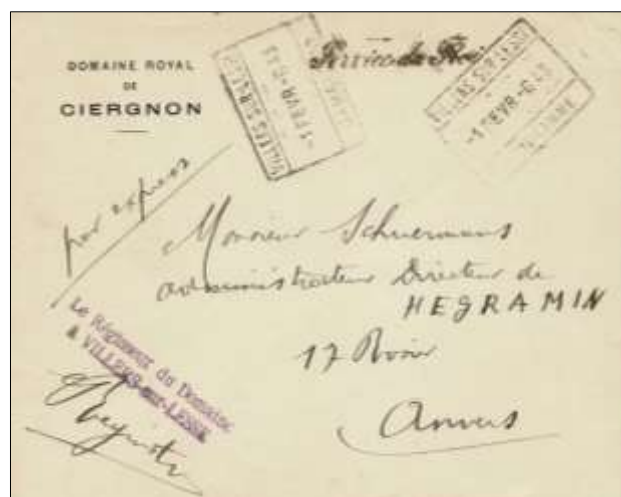 DOMAINE ROYAL
DE
CIERGNON
Service du Roi
VILLERS SUR LESSE
-1 FEVR -6 43
VILLERS SUR LESSE
-1 FEVR -6 43
par express
Monsieur Schuermans
administrateur Directeur de
HEGRAMIN
17
Anvers
Le Régisseur du Domaine
à VILLERS-sur-LESSE